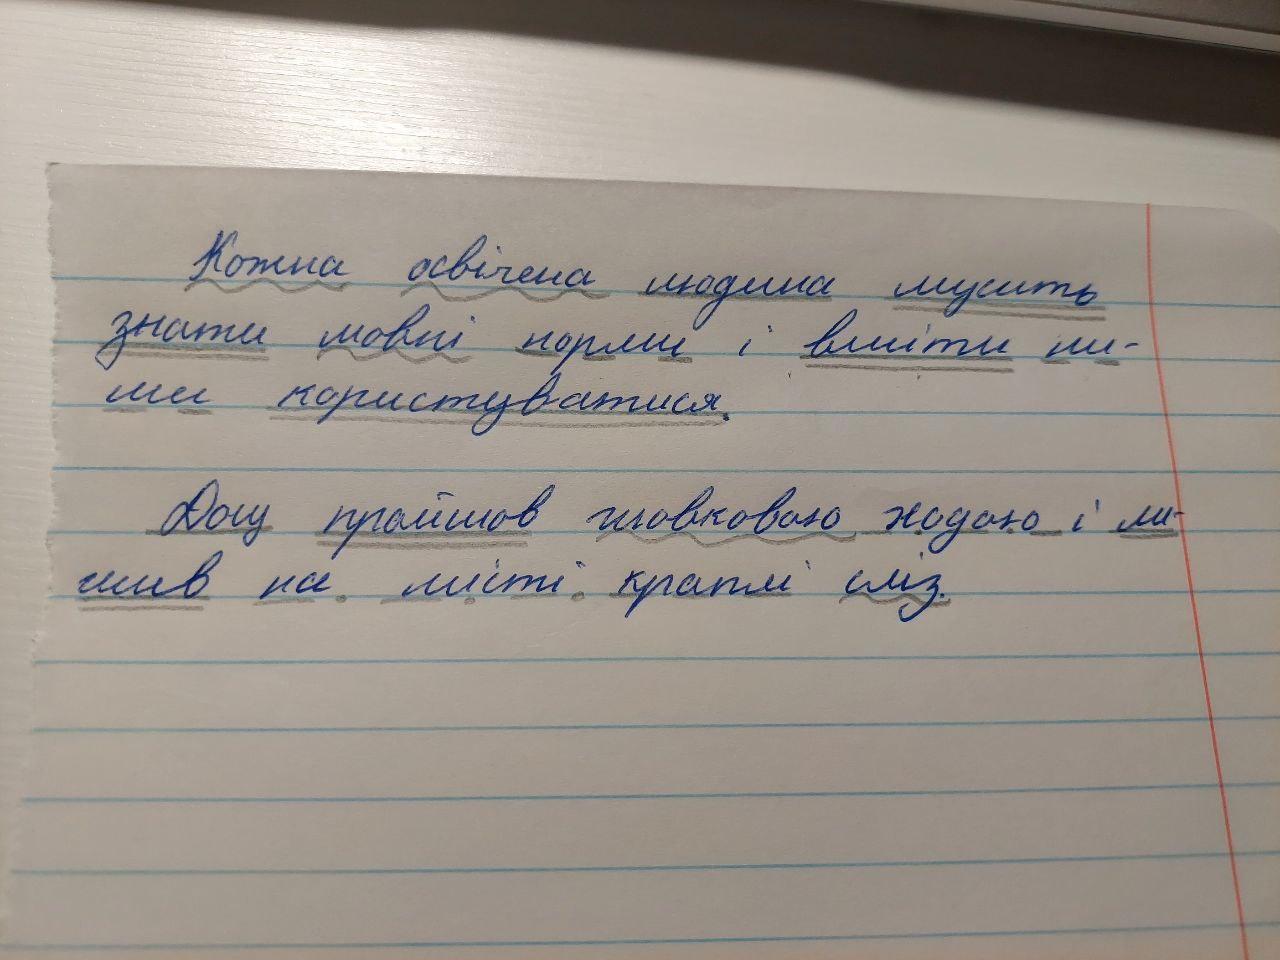 Кожна освічена людина мусить
знати мовні норми і вміти ни-
ми користуватися.
Дощ пройшов шовковою ходою і ли-
шив на місті краплі сліз.